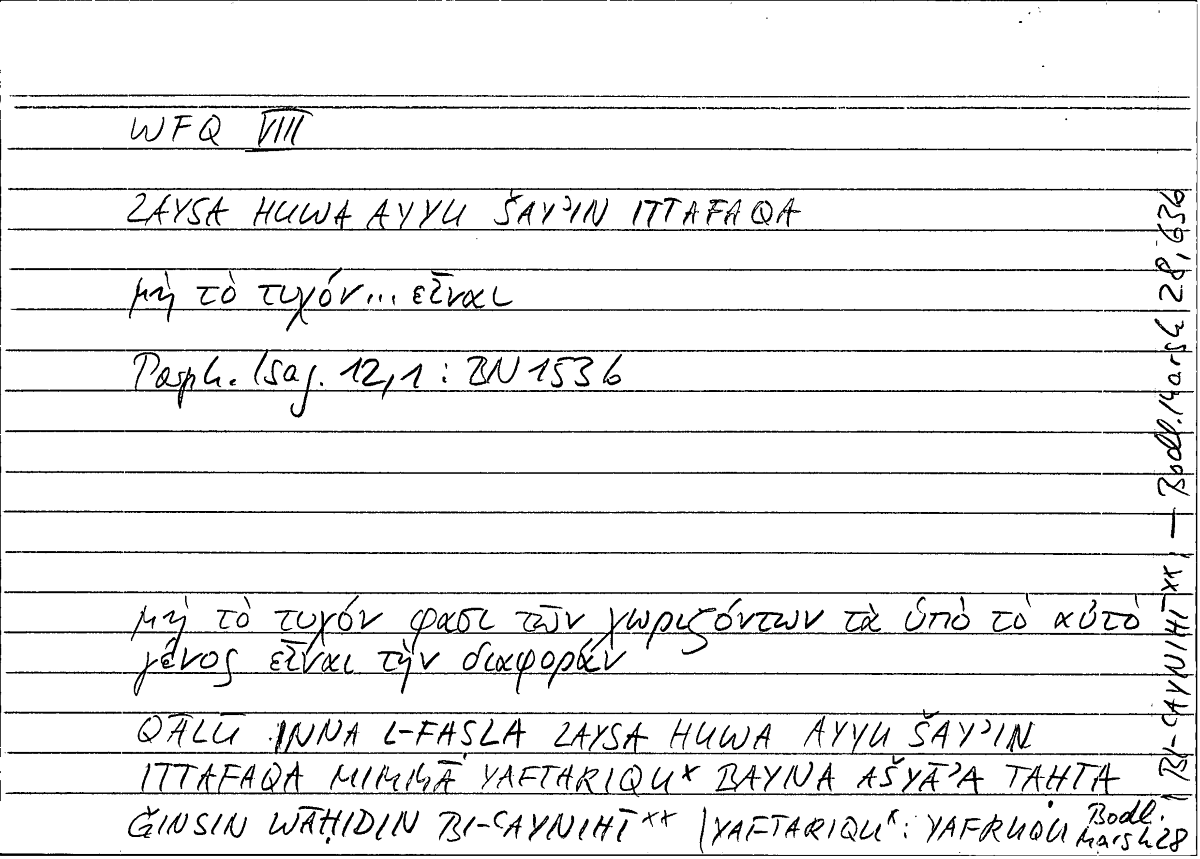 WFQ VIII
LAYSA HUWA AYYU ŠAYʾIN ITTAFAQA
μὴ τὸ τυχόν... εἶναι
Porph. Isag. 12,1 : BN 153b
μὴ τὸ τυχόν φασι τῶν χωριζόντων τὰ ὑπὸ τὸ αὐτὸ
γένος εἶναι τὴν διαφοράν
QĀLŪ INNA L-FAṢLA LAYSA HUWA AYYU ŠAYʾIN
ITTAFAQA MIMMĀ YAFTARIQU* BAYNA AŠYĀʾA TAḤTA
ǦINSIN WĀḤIDIN BI-ʿAYNIHĪ** | YAFTARIQU*: YAFRUQU Bodl. Marsh 28
| BI-ʿAYNIHĪ**: — Bodl. Marsh 28, 63b